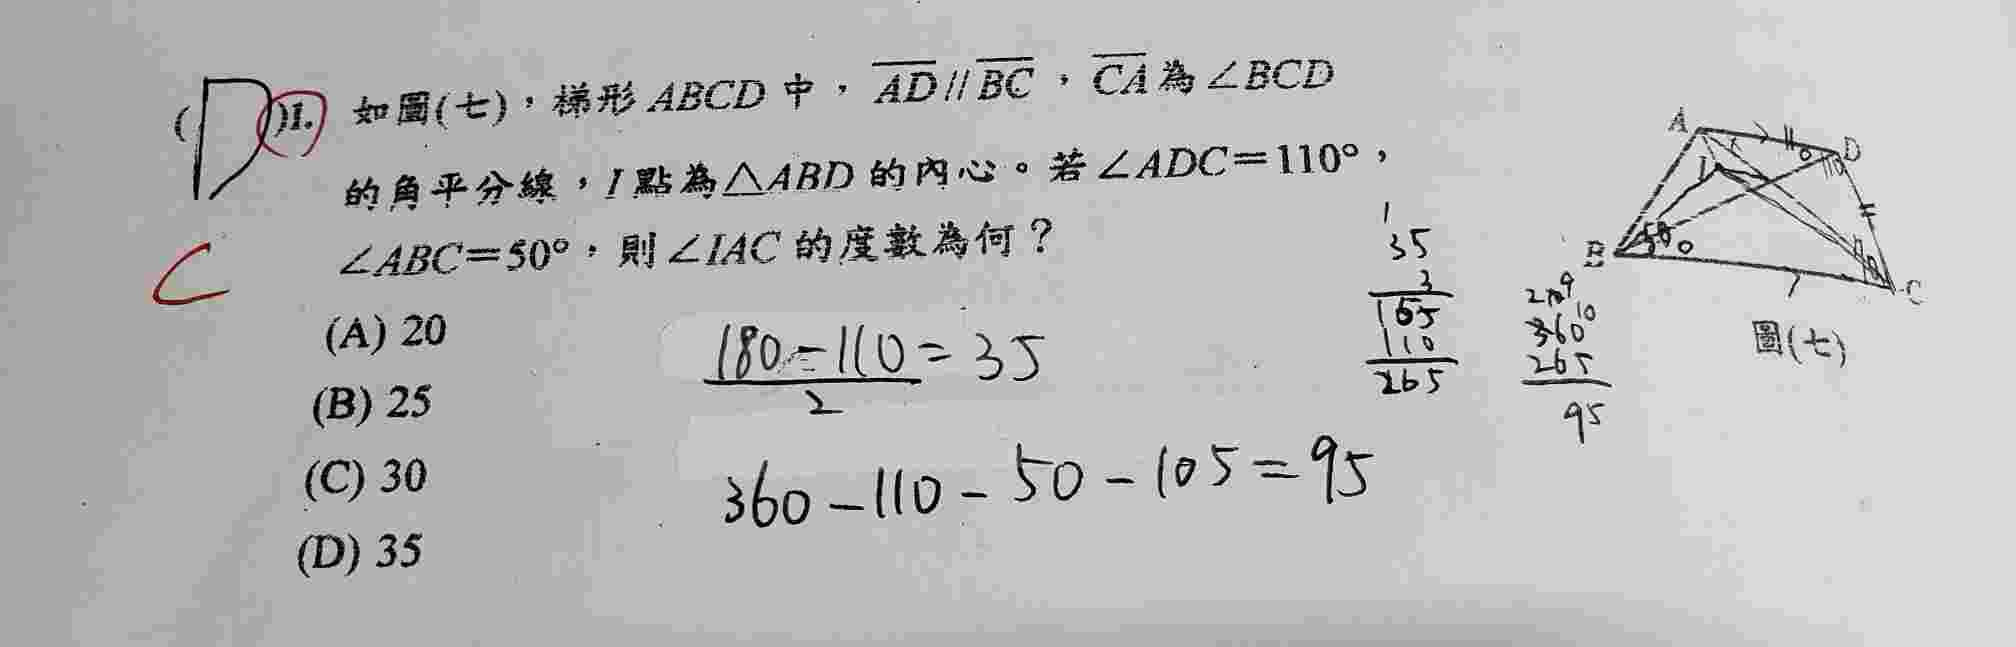 (D)1. 如圖(七)，梯形 ABCD 中，AD // BC，CA 為∠BCD
的角平分線，I 點為△ABD 的內心。若∠ADC＝110°，
C
∠ABC＝50°，則∠IAC 的度數為何？
(A) 20
(B) 25
(C) 30
(D) 35
180-110 = 35
2
360-110-50-105=95
1
35
3
105
110
265
9
10
360
265
95
A
D
110
I
B
50
C
圖(七)